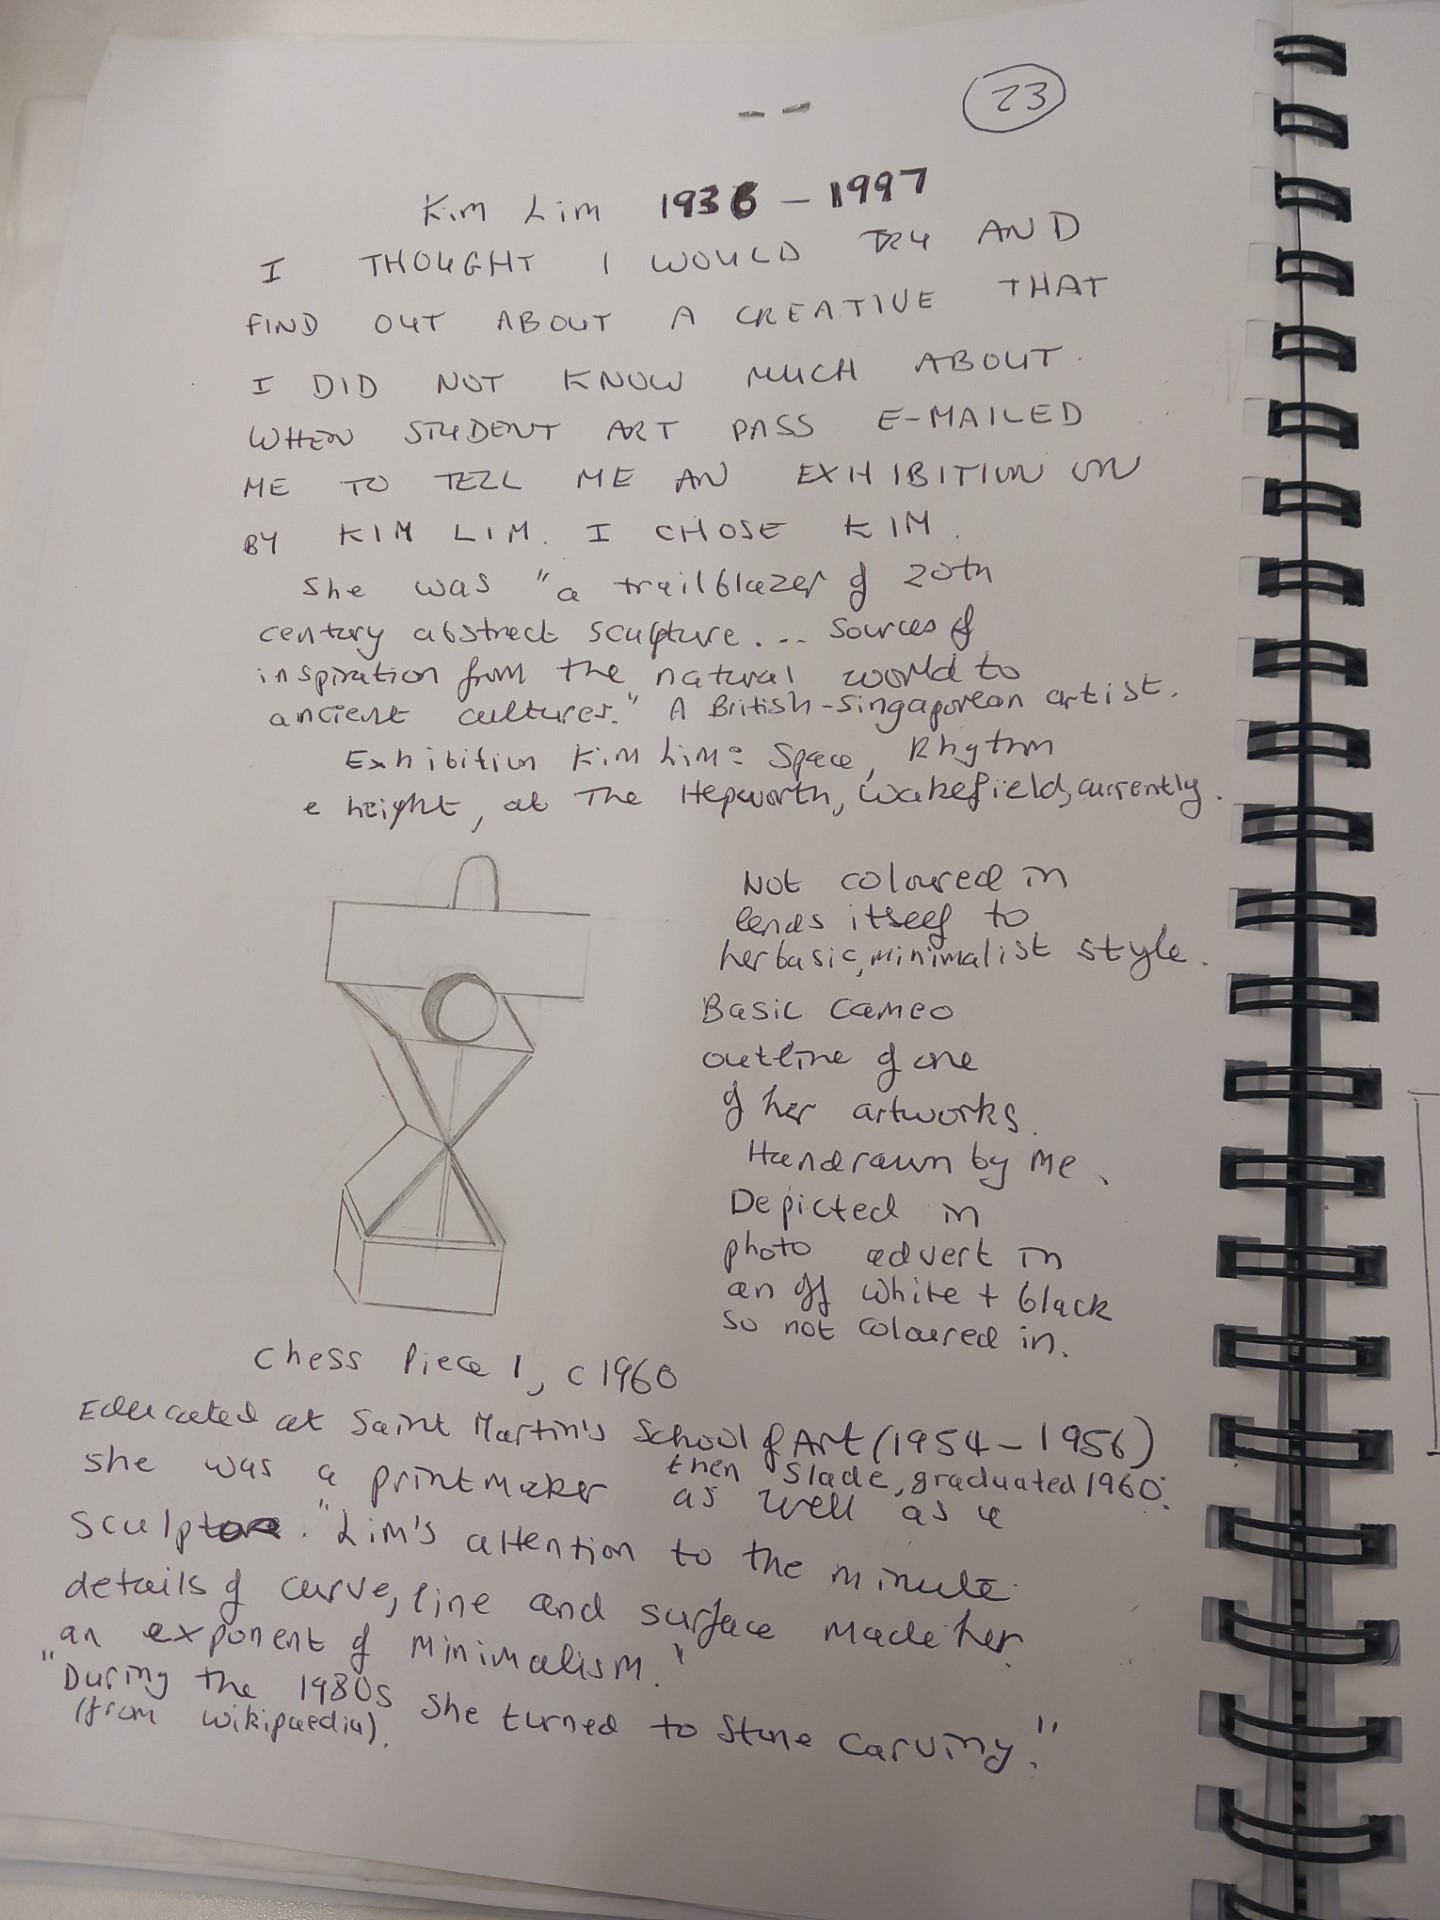 23
Kim Lim 1936 – 1997
I THOUGHT I WOULD TRY AND
FIND OUT ABOUT A CREATIVE THAT
I DID NOT KNOW MUCH ABOUT.
WHEN STUDENT ART PASS E-MAILED
ME TO TELL ME AN EXHIBITION ON
BY KIM LIM. I CHOSE KIM.
She was "a trailblazer of 20th
century abstract sculpture... Sources of
inspiration from the natural world to
ancient cultures." A British-Singaporean artist.
Exhibition Kim Lim: Space, Rhythm
& height, at The Hepworth, Wakefield, currently.
Not coloured in
lends itself to
her basic, minimalist style.
Basic cameo
outline of one
of her artworks.
Handrawn by me.
Depicted in
photo advert in
an off white + black
so not coloured in.
Chess Piece 1, c1960
Educated at Saint Martin's School of Art (1954 – 1956)
then Slade, graduated 1960.
She was a printmaker as well as a
sculptor. "Lim's attention to the minute
details of curve, line and surface made her
an exponent of minimalism."
"During the 1980s she turned to stone carving."
(from wikipaedia).